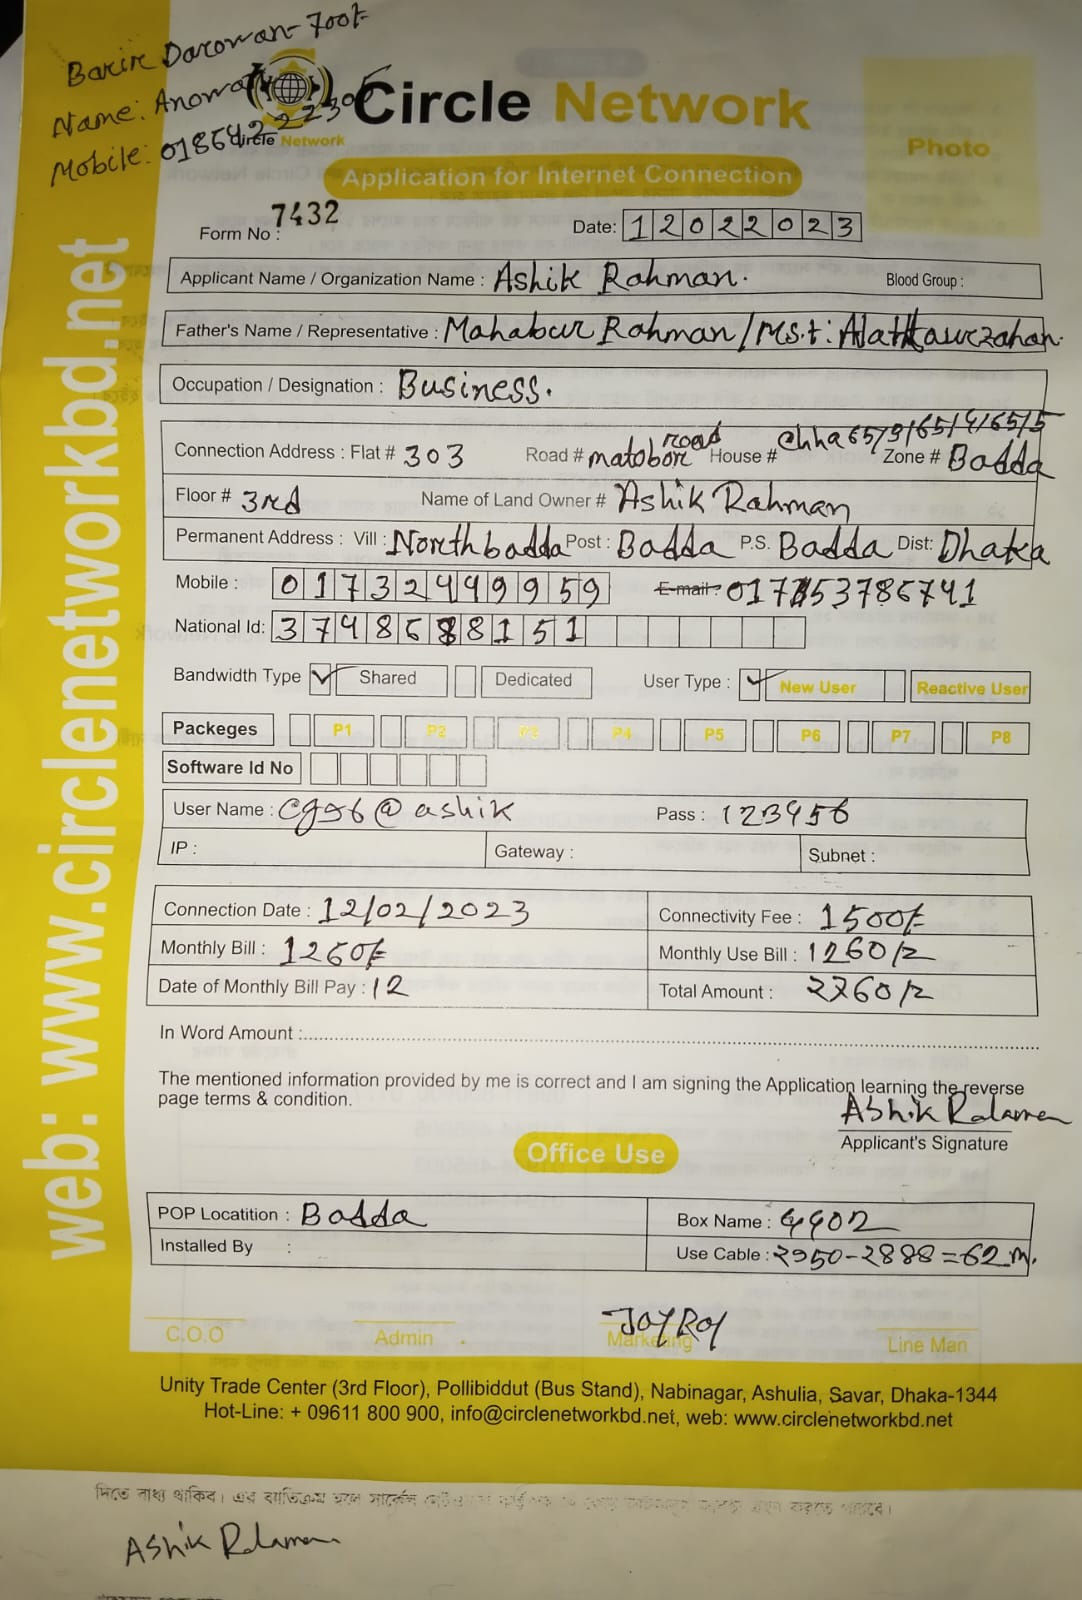 Barir Darowan-700/-
Name: Anowar
Mobile:
Circle Network
Circle Network
Photo
Application for Internet Connection
Form No : 7432
Date: 12022023
Applicant Name / Organization Name : Ashik Rahman. Blood Group :
Father's Name / Representative : Mahabur Rahman/Mst:
Occupation / Designation : Business.
Connection Address : Flat # 303 Road # matobor road House # chha 65/9/65/4/65/5 Zone # Badda
Floor # 3rd Name of Land Owner # Ashik Rahman
Permanent Address : Vill : Northbadda Post : Badda P.S. Badda Dist: Dhaka
Mobile : 01732499959 E-mail :
National Id:
Bandwidth Type ✓ Shared Dedicated User Type : ✓ New User Reactive User
Packeges P1 P2 P3 P4 P5 P6 P7 P8
Software Id No
User Name : Pass : 123456
IP : Gateway : Subnet :
Connection Date : 12/02/2023 Connectivity Fee : 1500/-
Monthly Bill : 1260/- Monthly Use Bill : 1260/2
Date of Monthly Bill Pay : 12 Total Amount : 2760/2
In Word Amount :
The mentioned information provided by me is correct and I am signing the Application learning the reverse
page terms & condition.
Ashik Rahman
Applicant's Signature
Office Use
POP Locatition : Badda Box Name :
Installed By : Use Cable : 2950-2888=62 m.
Joy Roy
C.O.O Admin Marketing Line Man
Unity Trade Center (3rd Floor), Pollibiddut (Bus Stand), Nabinagar, Ashulia, Savar, Dhaka-1344
Hot-Line: + 09611 800 900, info@circlenetworkbd.net, web: www.circlenetworkbd.net
web: www.circlenetworkbd.net
দিতে বাধ্য থাকিব। এর ব্যতিক্রম হলে সার্কেল
Ashik Rahman